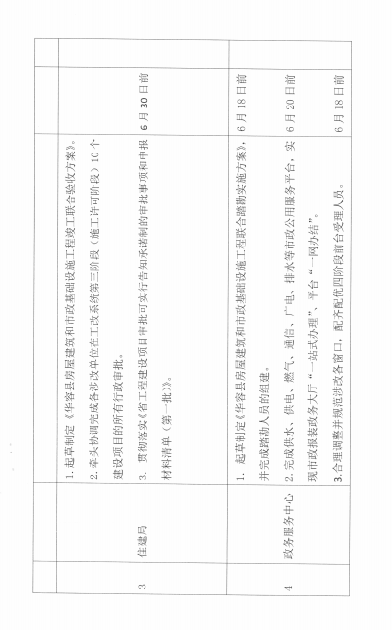 1. 起草制定《华容县房屋建筑和市政基础设施工程竣工联合验收方案》。
2. 牵头协调完成各涉改单位在工改系统第三阶段（施工许可阶段）10 个
建设项目的所有行政审批。
3 住建局
3. 贯彻落实《省工程建设项目审批可实行告知承诺制的审批事项和申报 6 月 30 日前
材料清单（第一批）》。
1. 起草制定《华容县房屋建筑和市政基础设施工程联合踏勘实施方案》， 6 月 18 日前
并完成踏勘人员的组建。
4 政务服务中心
2. 完成供水、供电、燃气、通信、广电、排水等市政公用服务平台，实 6 月 20 日前
现市政报装政务大厅“一站式办理”、平台“一网办结”。
3.合理调整并规范涉改各窗口，配齐配优四阶段前台受理人员。 6 月 18 日前